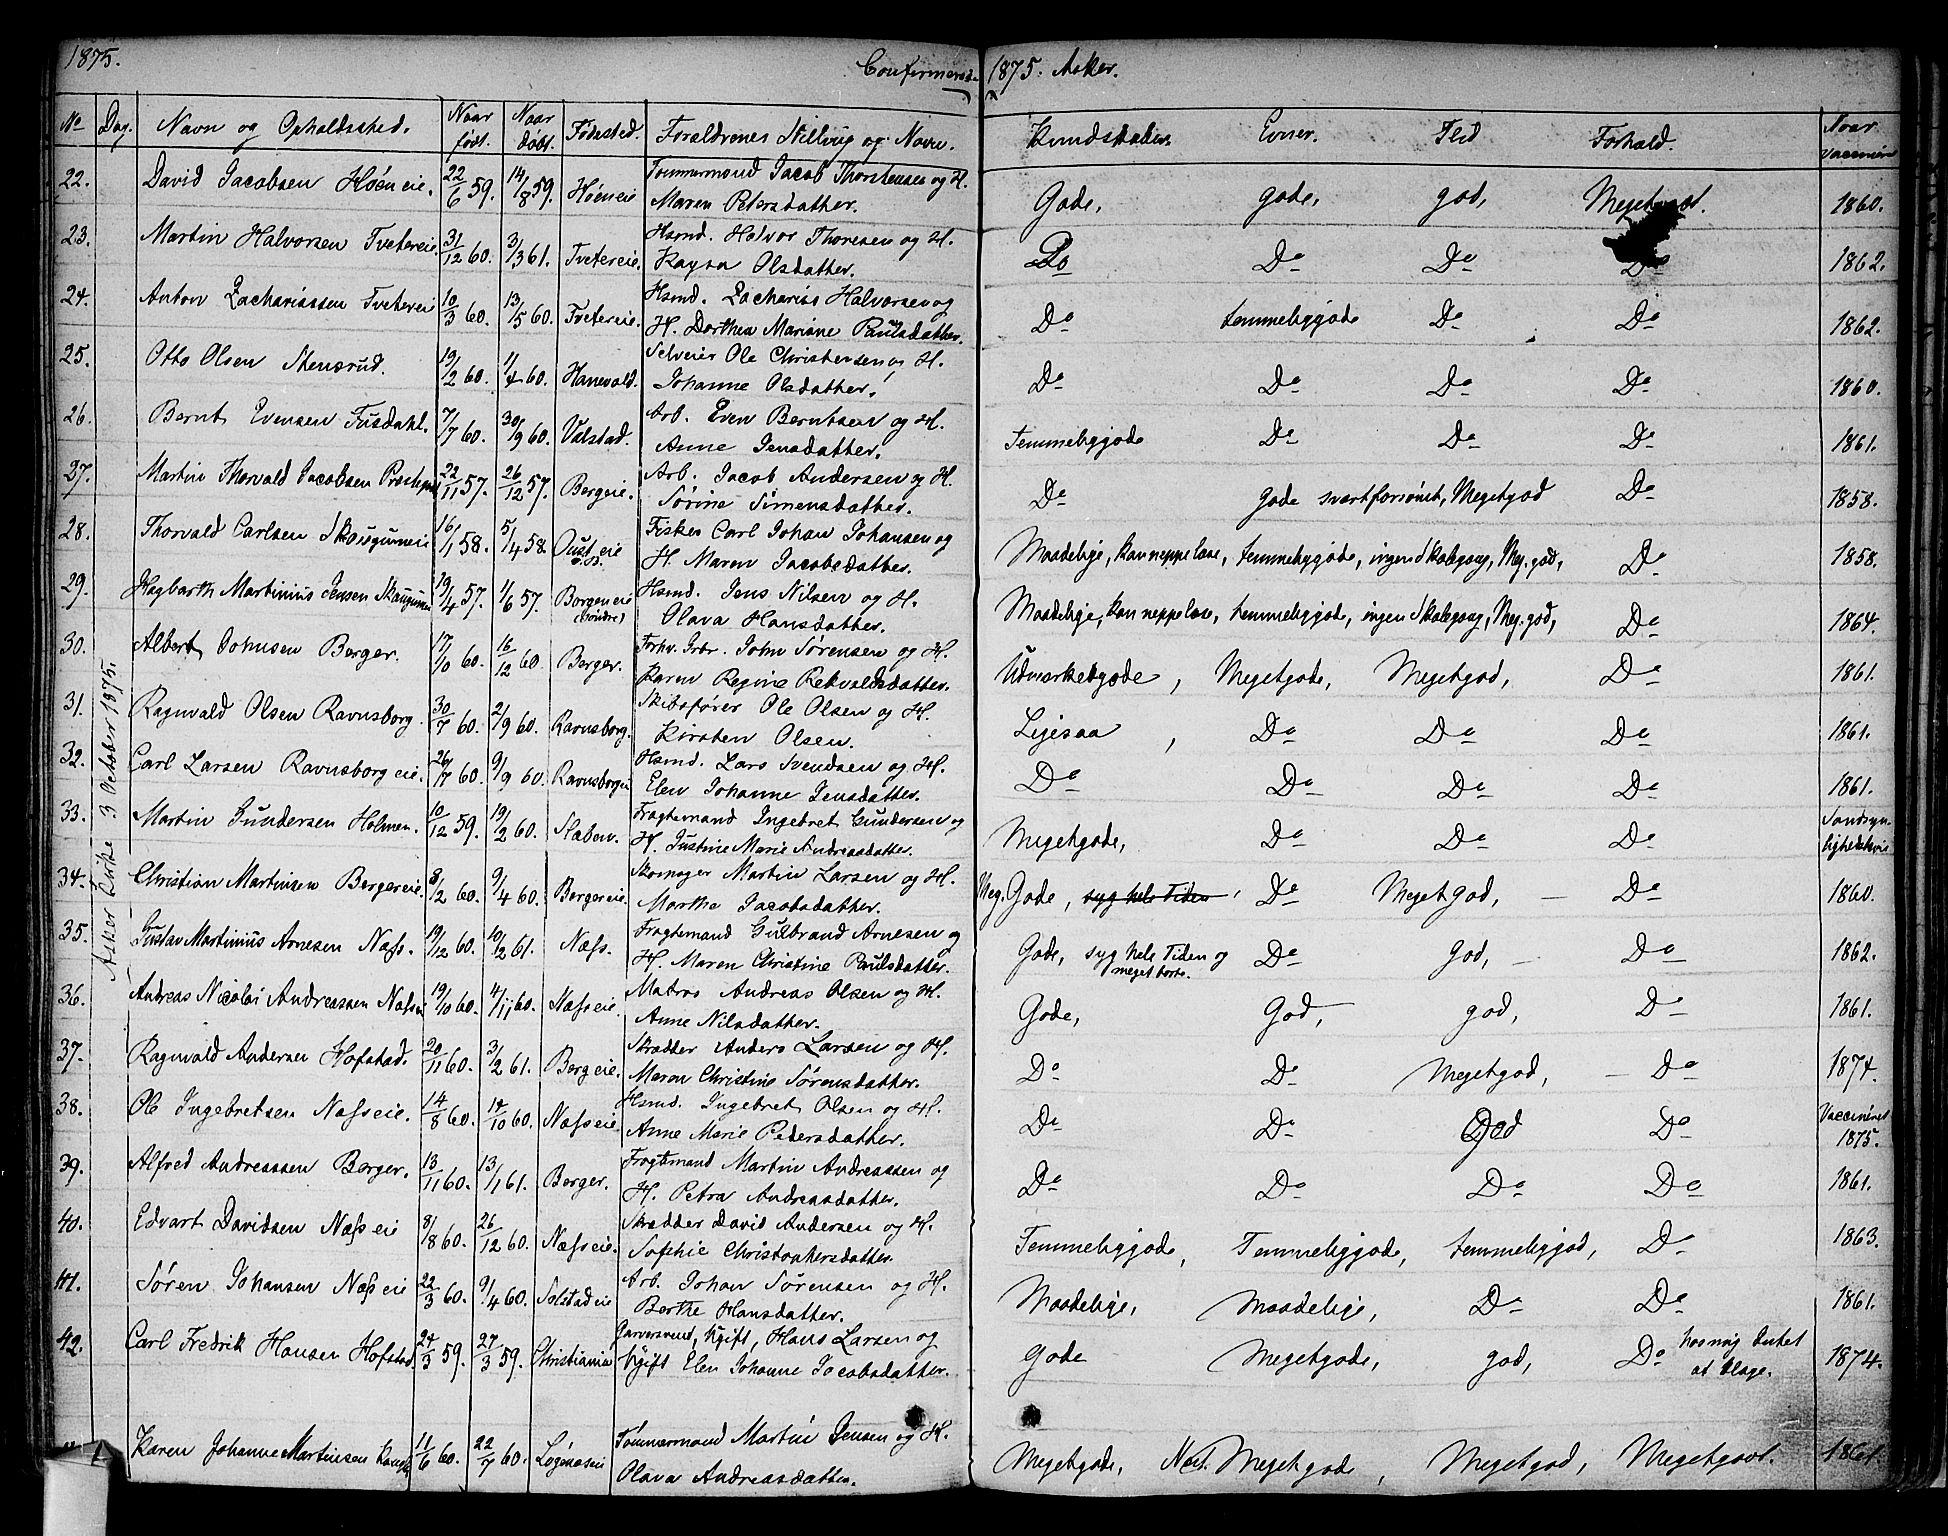 1875. Confirmerede 1875. Asker.
No Dag. Navn og Opholdssted. Naar født. Naar døbt. Fødested. Forældrenes Stilling og Navn. Kundskaber. Evner. Flid Forhold. Naar vaccinirt
Asker Kirke 3 October 1875.
22. David Jacobsen Høeneie. 22/6 59. 14/8 59. Høeneie Tømmermand Jacob Thorstensen og H.
Maren Petersdatter. Gode, gode, god, Megetgodt. 1860.
23. Martin Halvorsen Tvetereie. 31/12 60. 3/3 61. Tvetereie. Hsmd. Halvor Thoresen og H.
Kaysa Olsdatter. Do Do Do Do 1862.
24. Anton Zachariassen Tvetereie 10/3 60. 13/5 60. Tvetereie. Hsmd. Zacharias Halvorsen og
H. Dorthea Mariane Paulsdatter. Do temmeliggode Do Do 1862.
25. Otto Olsen Stensrud. 19/2 60. 1/4 60. Hanevold. Selveier Ole Christensen og H.
Johanne Olsdatter. Do Do Do Do 1860.
26. Bernt Evensen Fusdahl. 7/7 60. 30/9 60. Valstad. Arb. Even Berntsen og H.
Anne Jensdatter. Temmeliggode Do Do Do 1861.
27. Martin Thorvald Jacobsen 22/11 57. 26/12 57. Bergeie. Arb. Jacob Andersen og H.
Sørine Simensdatter. Do gode svartforsømt, Megetgod Do 1858.
28. Thorvald Carlsen Skougumeie 16/1 58. 5/4 58. eie Fisker Carl Johan Johansen og
H. Maren Jacobsdatter. Maadelige, kan neppe læse, temmeliggode, ingen Skolegang, Meg. god, Do 1858.
29. Hagbarth Martinius Jensen 19/4 57. 1/6 57. Borgeneie (Søndre) Hsmd. Jens Nilsen og H.
Olava Hansdatter. Maadelige, kan neppe læse, temmeliggode, ingen Skolegang, Meg. god, Do 1864.
30. Albert Johnsen Berger. 17/10 60. 16/12 60. Berger. Forhv. Grbr. John Sørensen og H.
Karen Regine Rekvaldsdatter. Udmærketgode, Megetgode, Megetgod, Do 1861.
31. Ragnvald Olsen Ravnsborg. 30/7 60. 2/9 60. Ravnsborg. Skibsfører Ole Olsen og H.
Kirsten Olsen. Ligesaa, Do Do Do 1861.
32. Carl Larsen Ravnsborgeie. 26/7 60. 9/9 60. Ravnsborgeie Hsmd. Lars Svendsen og H.
Elen Johanne Jensdatter. Do Do Do Do 1861.
33. Martin Gundersen Holmen. 10/12 59. 19/2 60. Slaben. Fragtemand Ingebret Gundersen og
H. Justine Marie Andreasdatter. Megetgode, Do Do Do Sandsynlighedsbevis
34. Christian Martinsen Bergereie. 8/2 60. 9/4 60. Bergereie. Skomager Martin Larsen og H.
Marthe Jacobsdatter. Meg. Gode, syg hele Tiden, Do Megetgod, — Do 1860.
35. Gustav Martinius Arnesen Næss. 19/12 60. 10/2 61. Næss. Fragtemand Gulbrand Arnesen og
H. Maren Christine Paulsdatter. Gode, syg hele Tiden og meget borte. Do god, — Do 1862.
36. Andreas Nicolai Andreassen Næsseie 19/10 60. 4/11 60. Næsseie. Matros Andreas Olsen og H.
Anne Nilsdatter. Gode, God, god, Do 1861.
37. Ragnvald Andersen Hofstad. 20/11 60. 3/2 61. Bergeie. Skrædder Anders Larsen og H.
Maren Christine Sørensdatter. Do Do Megetgod, — Do 1874.
38. Ole Ingebretsen Næsseie. 14/8 60. 14/10 60. Næsseie. Hsmd. Ingebret Olsen og H.
Anne Marie Pedersdatter. Do Do God Do Vaccineret 1875.
39. Alfred Andreassen Berger. 13/11 60. 13/1 61. Berger. Fragtemand Martin Andreassen og
H. Petra Andreasdatter. Do Do Do Do 1861.
40. Edvart Davidsen Næsseie 8/8 60. 26/12 60. Næsseie. Skrædder David Andersen og H.
Sophie Christophersdatter. Temmeliggode, Temmeliggode, temmeliggod, Do 1863.
41. Søren Johansen Næsseie 22/3 60. 9/4 60. Solstadeie Arb. Johan Sørensen og H.
Berthe Hansdatter. Maadelige, Maadelige, Do Do 1861.
42. Carl Fredrik Hansen Hofstad 24/3 59. 27/3 59. Christiania Garversvend, Ugift, Hans Larsen og
Ugift Elen Johanne Jacobsdatter. Gode Megetgode, god, Do hosmig Intet at klage. 1874.
Karen Johanne Martinsen 11/6 60. 22/7 60. Tømmermand Martin Jensen og H.
Olava Andreasdatter. Megetgode, Megetgode, Megetgod, Megetgodt. 1861.